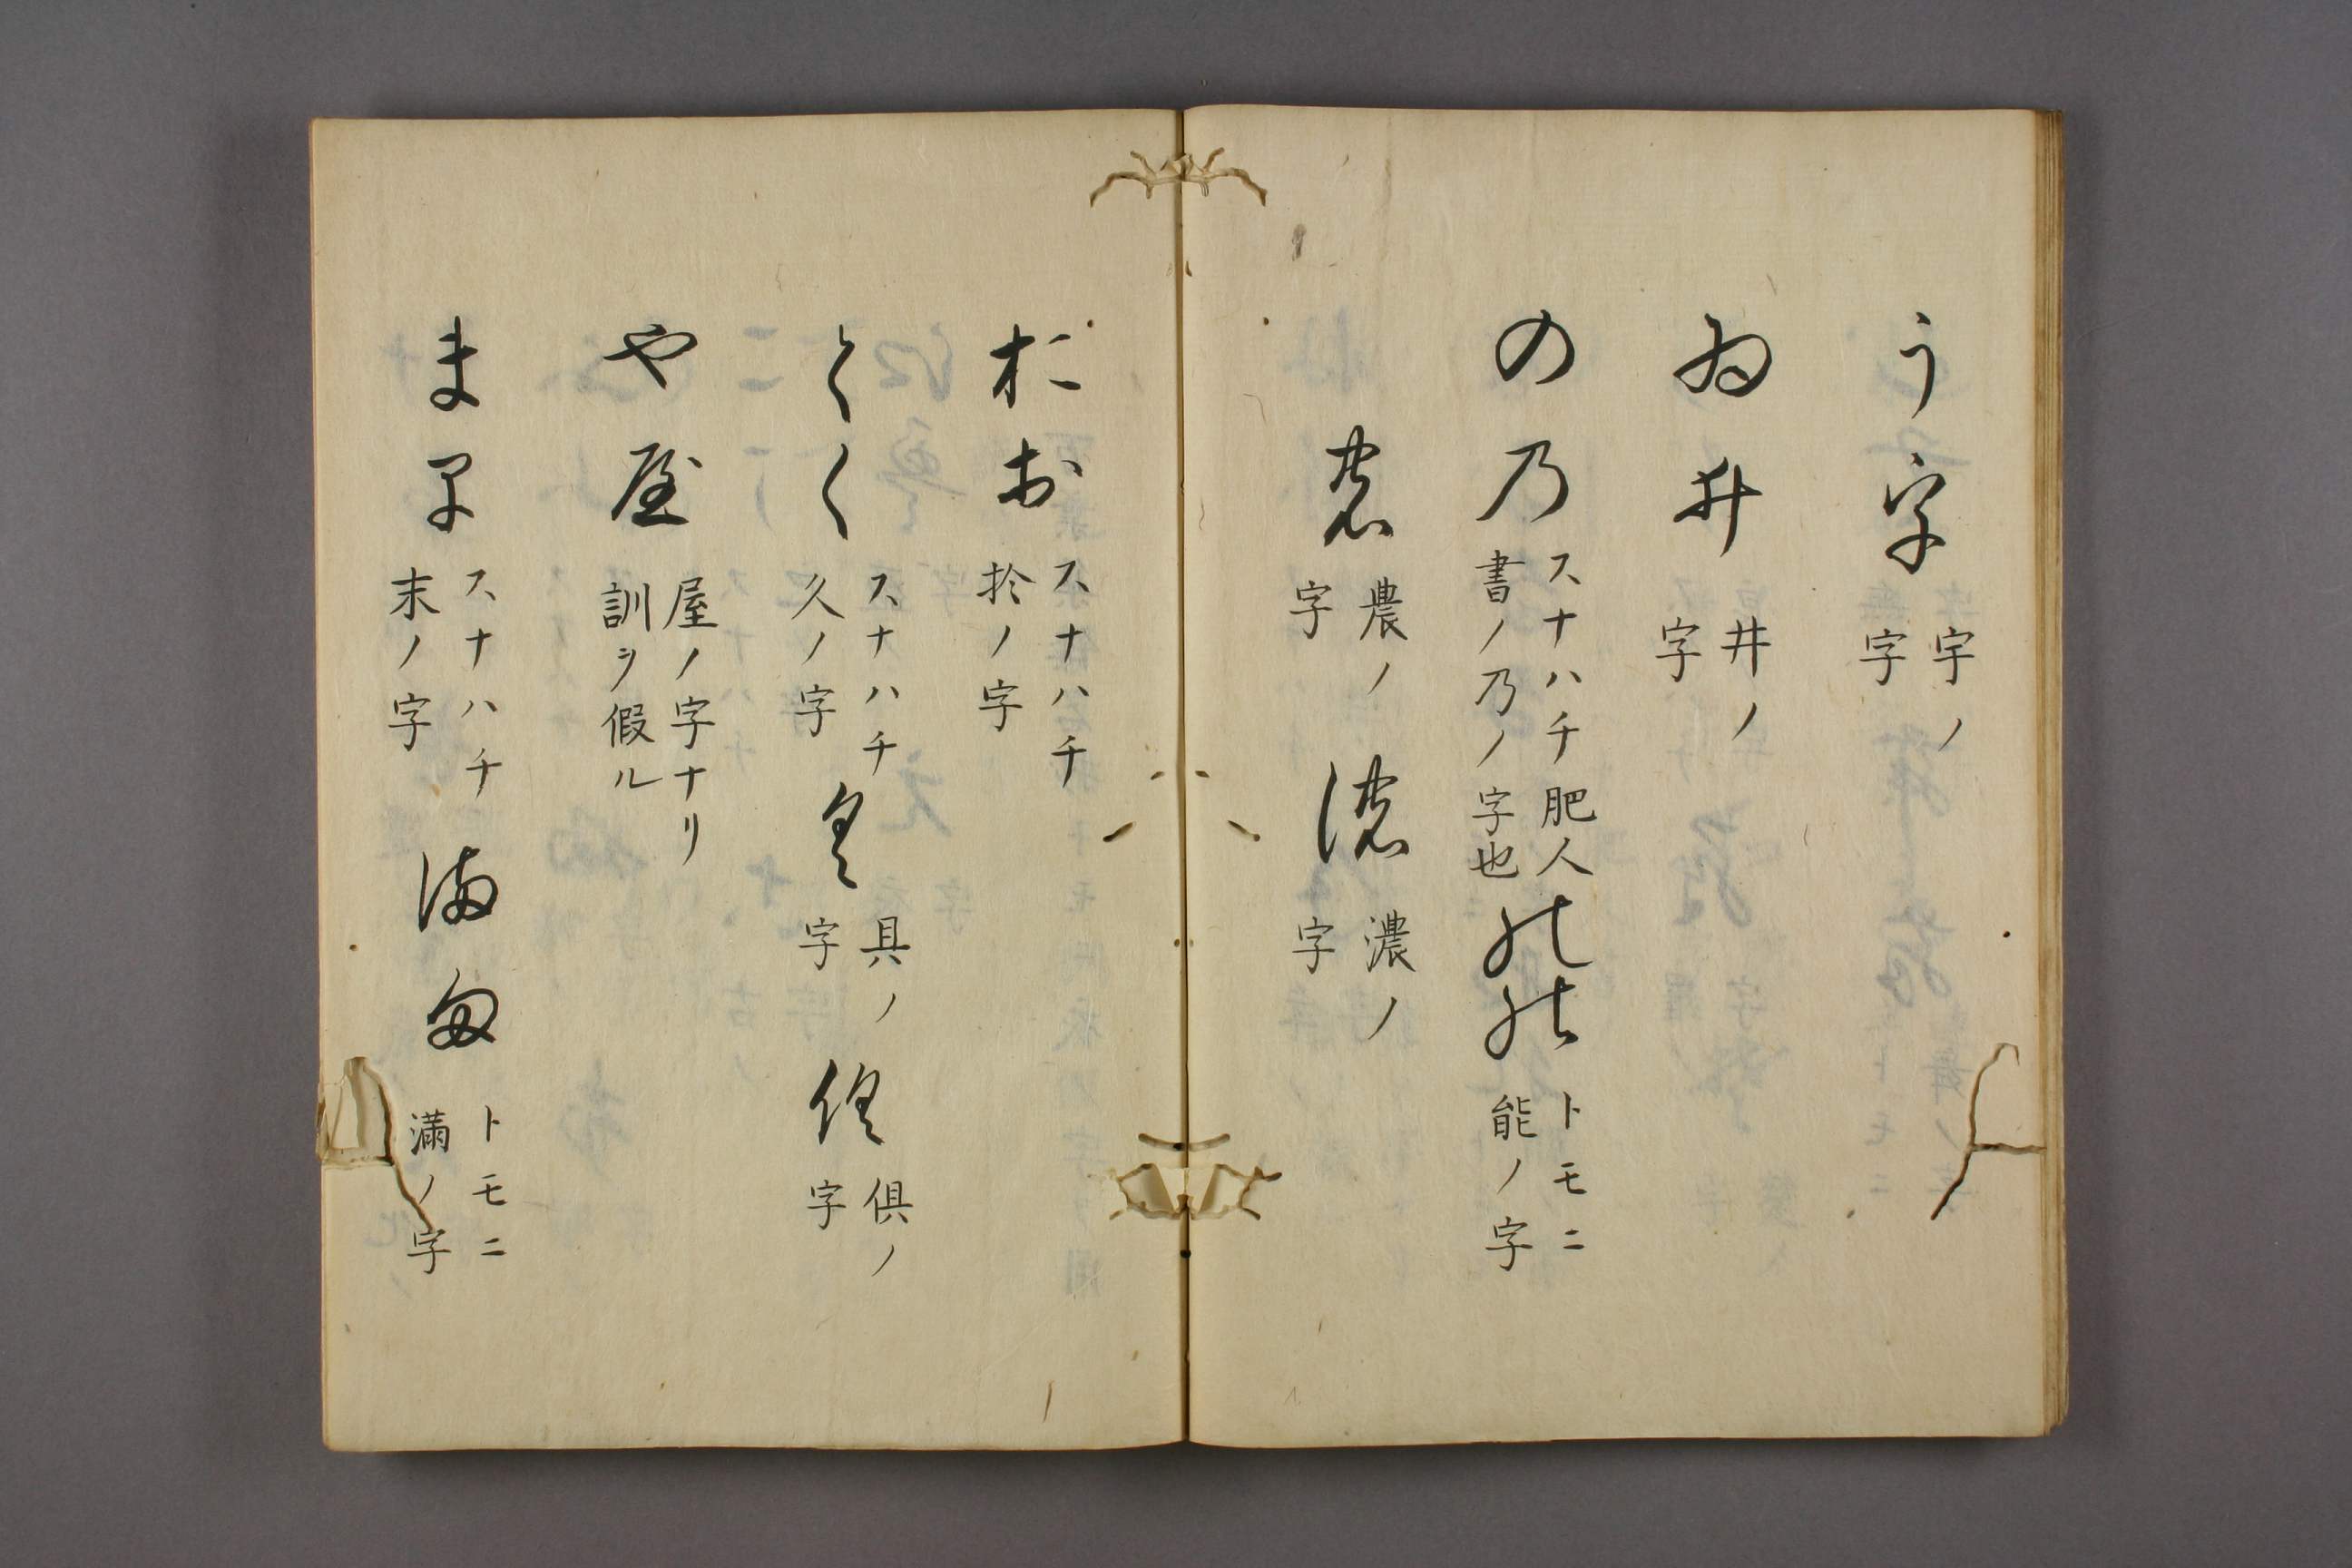 う 宇 宇ノ字
ゐ 井 井ノ字
の 乃 スナハチ肥人書ノ乃ノ字也 能 能 トモニ能ノ字
農 農ノ字 濃 濃ノ字
お お スナハチ於ノ字
く く スナハチ久ノ字 具 具ノ字 倶 倶ノ字
や 屋 屋ノ字ナリ訓ヲ假ル
ま ま スナハチ末ノ字 満 満 トモニ滿ノ字